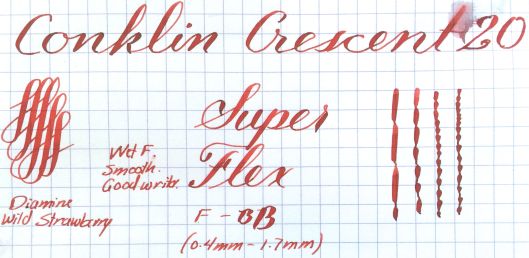 Conklin Crescent 20
Super
Flex
Wet F.
Smooth.
Good writer.
Diamine
Wild Strawberry
F - BB
(0.4mm - 1.7mm)